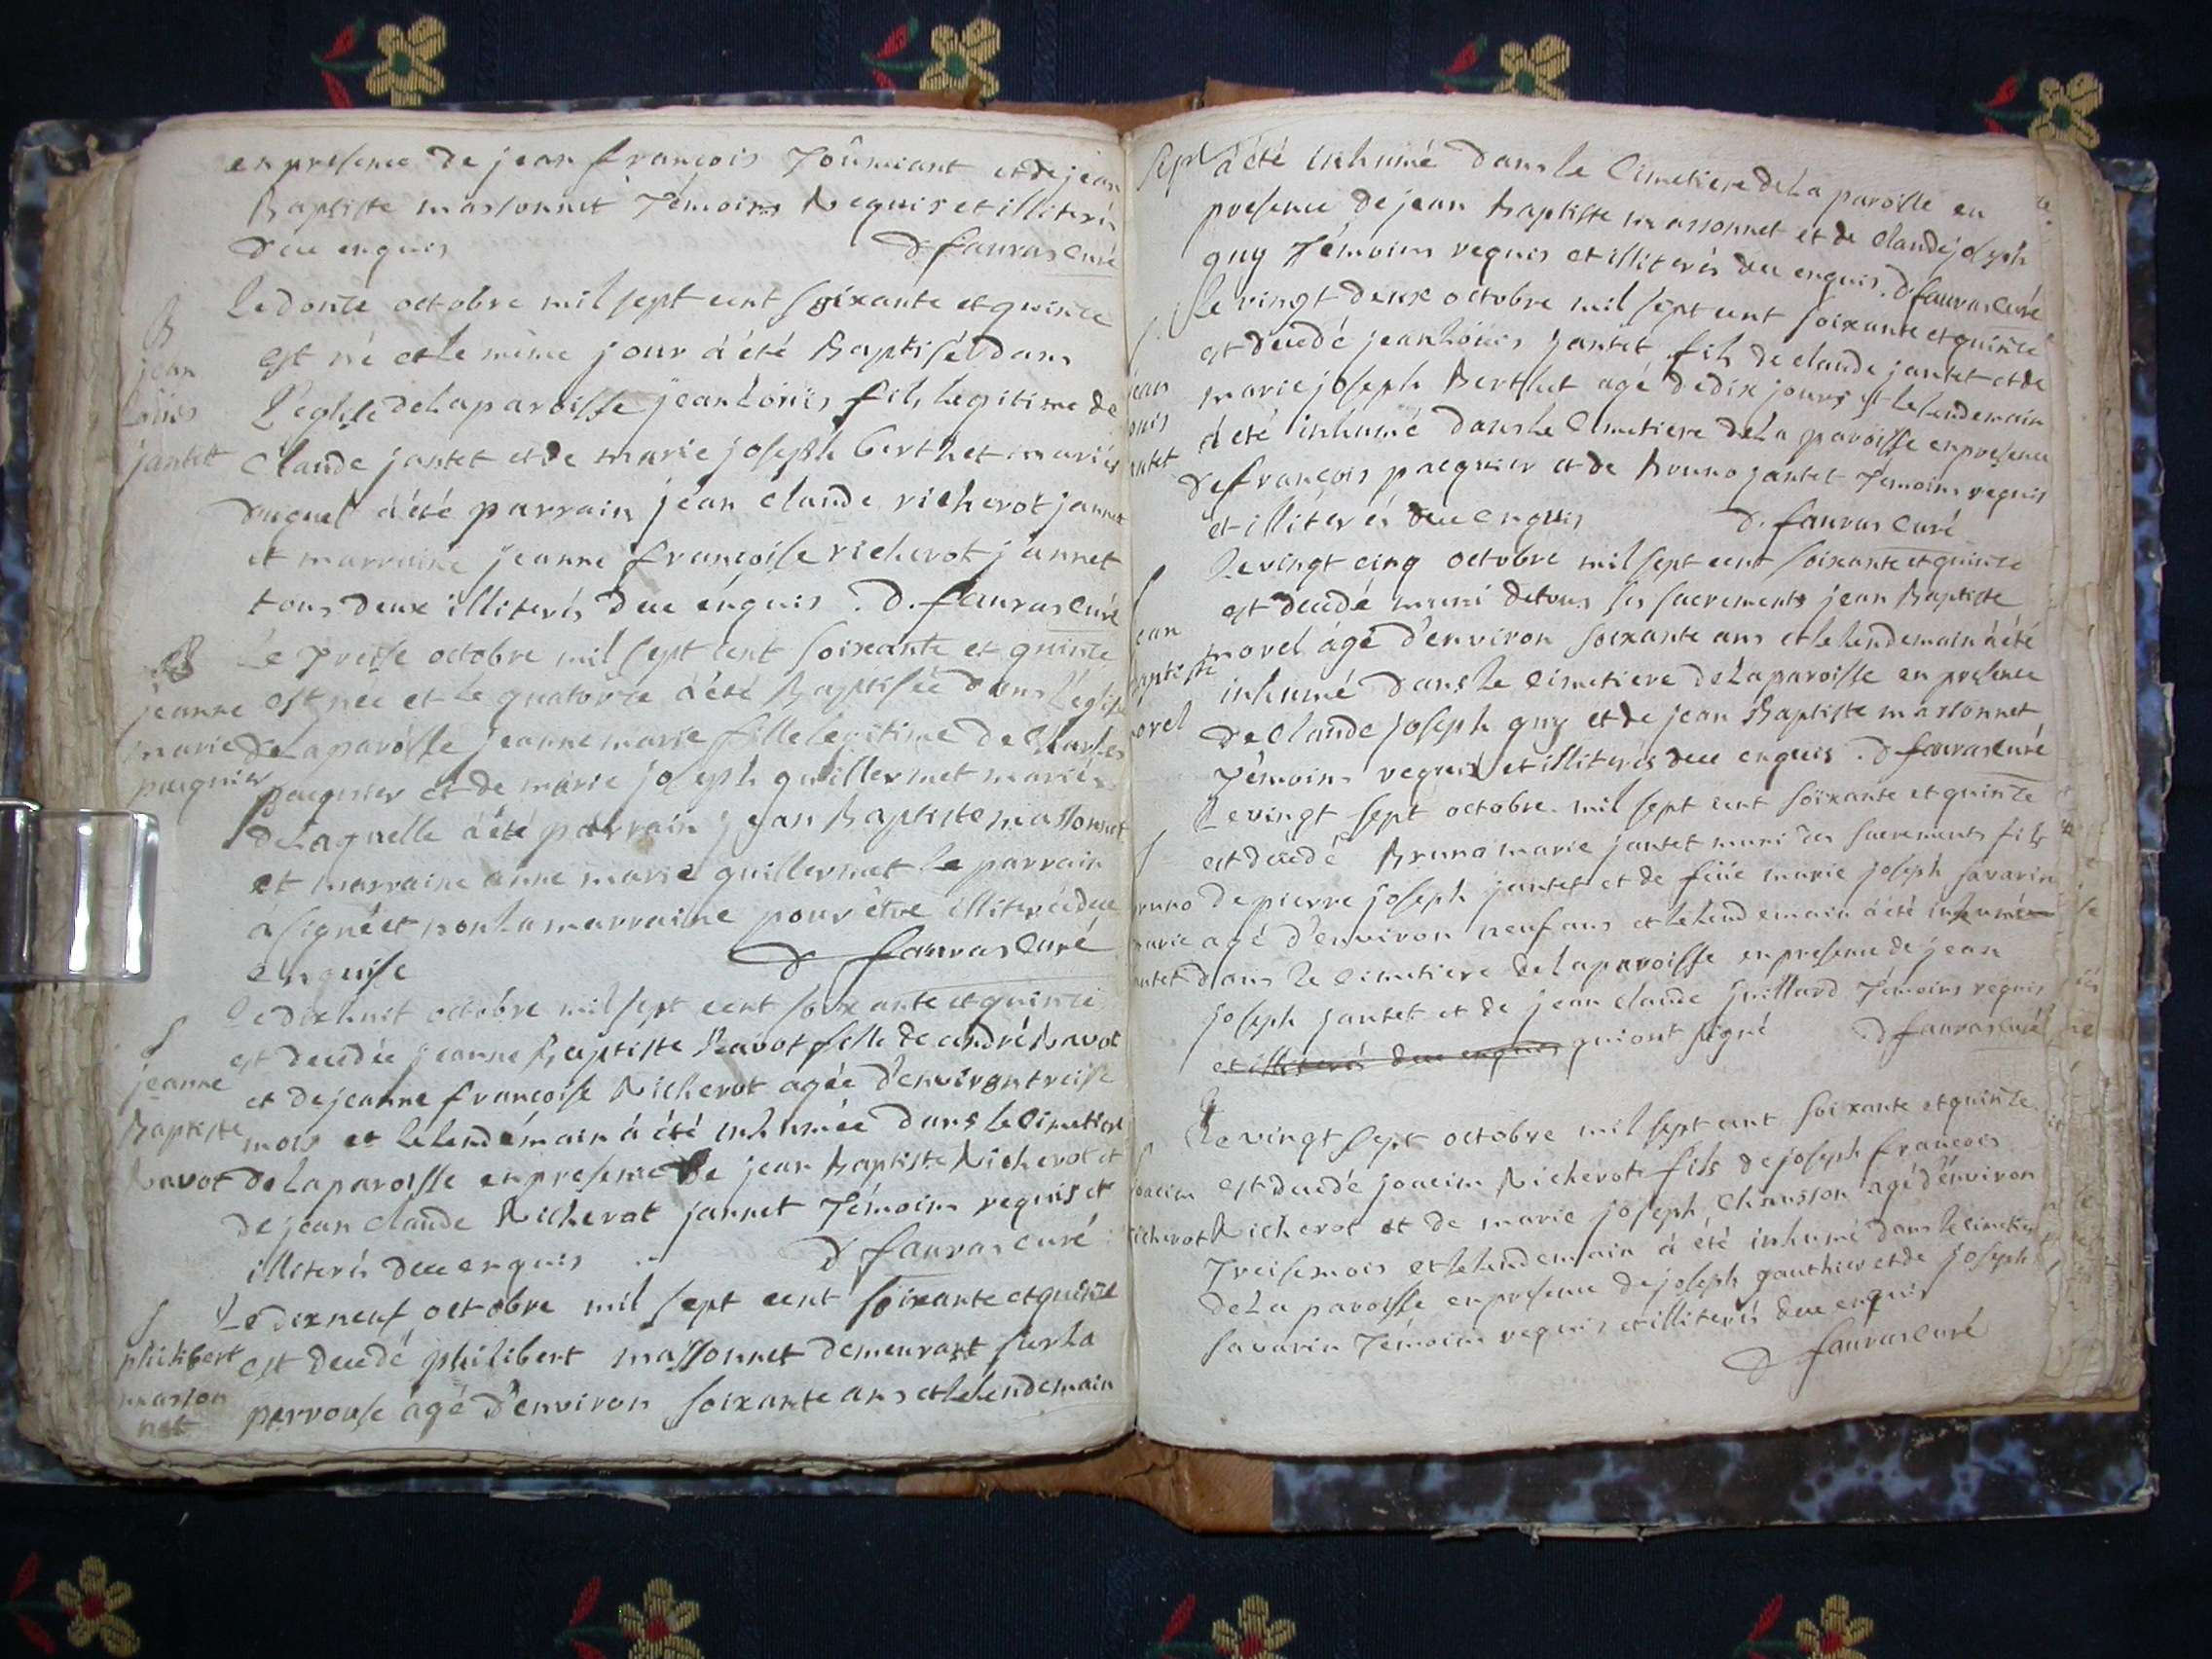 en presence de jean françois Toûmiant et de jean
Baptiste massonnet Témoins Requis et illiterés
due enquis D fauras Curé
B
jean
Loüis
jantet
Le donze octobre mil sept cent soixante et quinze
est né et le même jour à été Baptisé dans
l'eglise de La paroisse jean Loüis fils legitime de
Claude jantet et de marie joseph berthet mariés
duquel à été parrain jean claude richerot jannet
et marraine jeanne françoise richerot jannet
tous deux illiterés due enquis . D. fauras Curé
B
jeanne
marie
pacquier
Le Treise octobre mil sept cent soixante et quinze
est née et le quatorze à été Baptisée dans l'eglise
de La paroisse jeanne marie fille legitime de Charles
pacquier et de marie joseph guillermet mariés
de Laquelle à été parrain jean Baptiste massonnet
et marraine anne marie guillermet le parrain
à signé et non la marraine pour être illiterée due
enquise D fauras Curé
S
jeanne
Baptiste
Ravot
Le dix huit octobre mil sept cent soixante et quinze
est decedée jeanne Baptiste Ravot fille de andré Ravot
et de jeanne francoise Richerot agée d'environ treise
mois et le lendemain à été inhumée dans le Cimetiere
de La paroisse en presence de jean Baptiste Richerot et
de jean Claude Richerot jannet Témoins requis et
illiterés due enquis D fauras curé
S
philibert
masson
net
Le dix neuf octobre mil sept cent soixante et quinze
est decedé philibert massonnet demeurant sur La
perrouse âgé d'environ soixante ans et le lendemain
Sept à été inhumé dans le Cimetiere de La paroisse en
presence de jean Baptiste massonnet et de Claude joseph
guy Témoins requis et illiterés due enquis. D fauras Curé
S
jean
ouis
antet
Le vingt deux octobre mil sept cent soixante et quinze
est decedé jean Loüis jantet fils de claude jantet et de
marie joseph Berthet agé de dix jours et le lendemain
à été inhumé dans Le Cimetiere de La paroisse en presence
de françois pacquier et de Bruno jantet Témoins requis
et illiterés due enquis D. fauras Curé
S
ean
Baptiste
orel
Le vingt cinq octobre mil sept cent soixante et quinze
est decedé muni de tous ses sacrements jean Baptiste
morel âgé d'environ soixante ans et le lendemain à été
inhumé dans le Cimetiere de La paroisse en presence
de Claude joseph guy et de jean Baptiste massonnet
Témoins requis et illiterés due enquis . D fauras Curé
S
runo
marie
antet
Le vingt sept octobre mil sept cent soixante et quinze
est decedé Bruno marie jantet muni des sacrements fils
de pierre joseph jantet et de feüe marie joseph savarin
agé d'environ neuf ans et le lendemain à été inhumé
dans le Cimetiere de La paroisse en presence de jean
joseph jantet et de jean claude juillard Témoins requis
et illiterés due enquis qui ont signé D fauras curé
S
joacim
icherot
Le vingt sept octobre mil sept cent soixante et quinze
est decedé joacim Richerot fils de joseph françois
Richerot et de marie joseph Chausson agé d'environ
Treise mois et le lendemain à été inhumé dans le cimetiere
de La paroisse en presence de joseph gauthier et de joseph
savarin Témoins requis et illiterés due enquis
D fauras Curé